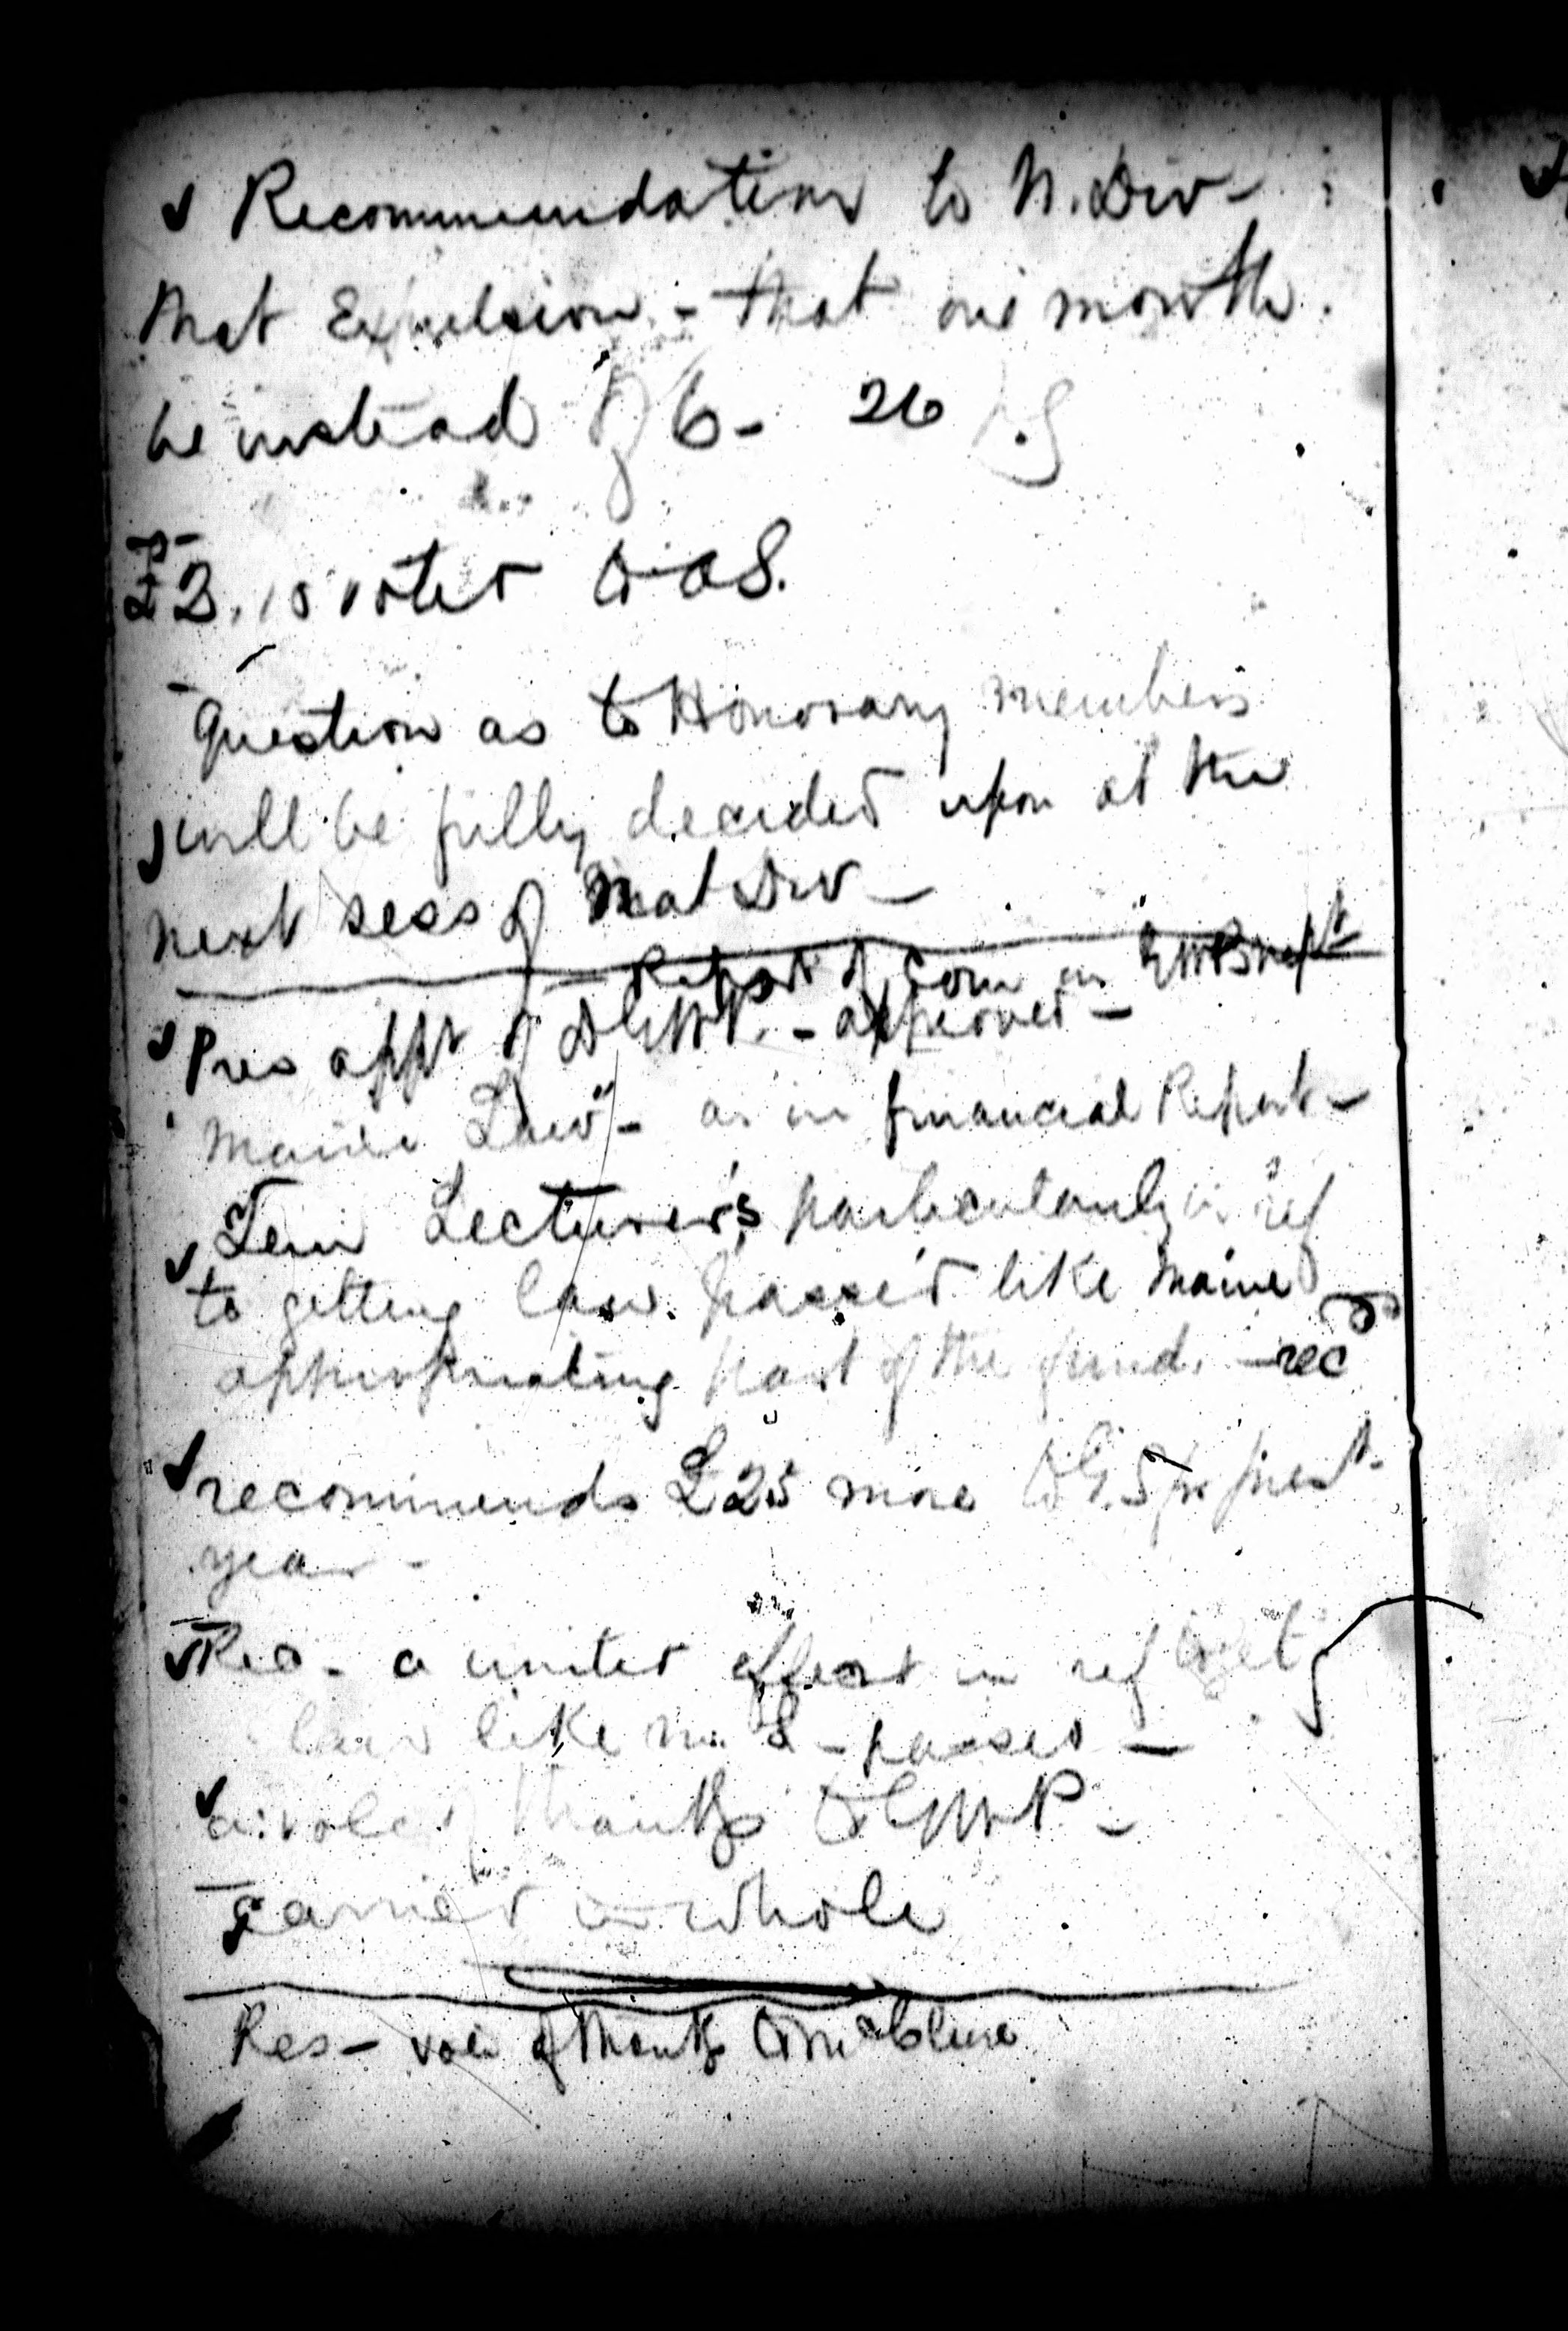 Recommendation to N. Div -
that Expulsion - that one month
be instead of 6 - 26
£3.15 voted to
Question as to Honorary members
will be fully decided upon at the
next sess of Nat Div -
Report of Com on GWP's rept
Pres appt of DGWP. - approved -
Maine Law" - as in financial Report -
Tem Lecturers, particularly in ref
to getting law passed like Maine
appropriating part of the fund. - rec
recommends £25 more to G.S for prest
year -
Rec - a united effort in ref to get
law like M. L - passed -
a vote of thanks to GWP -
carried in whole
Res - vote of thanks to